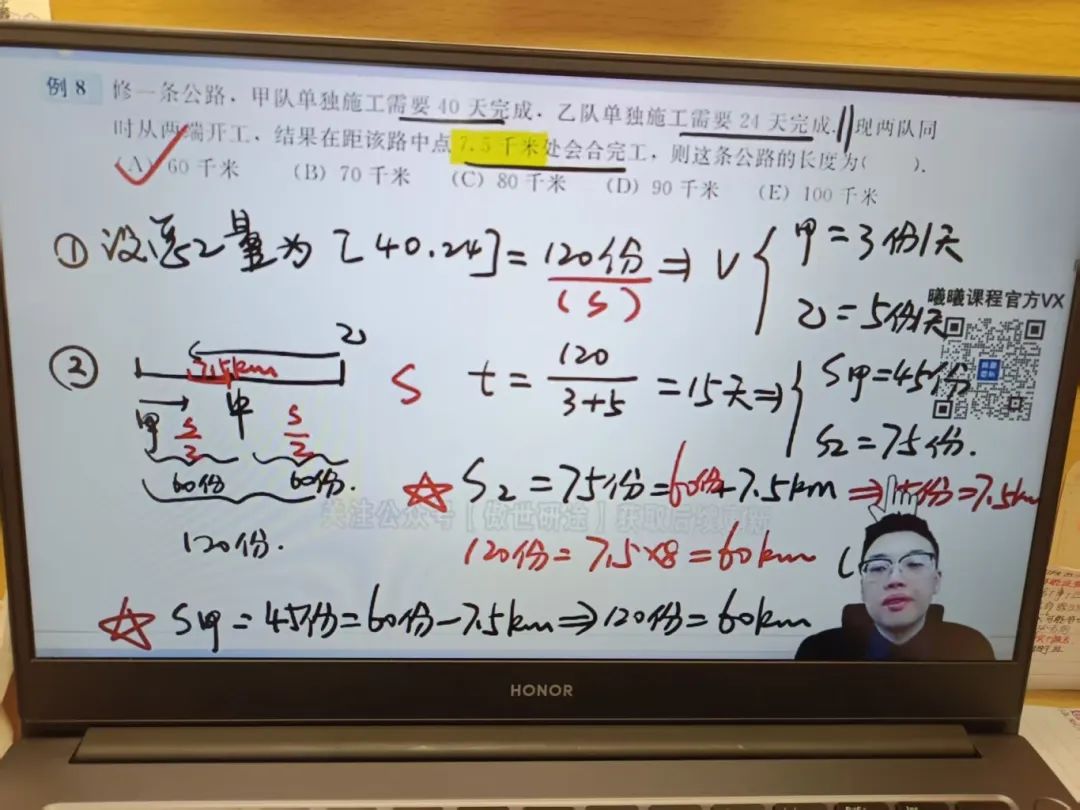 例 8 修一条公路，甲队单独施工需要 40 天完成．乙队单独施工需要 24 天完成．现两队同
时从两端开工，结果在距该路中点 7.5 千米处会合完工，则这条公路的长度为(　　).
(A) 60 千米 (B) 70 千米 (C) 80 千米 (D) 90 千米 (E) 100 千米
① 设总工量为 [40.24] = 120份 ⇒ V { 甲 = 3份/天
(S)
乙 = 5份/天
曦曦课程官方VX
② 乙
7.5km
S t = 120/(3+5) = 15天 ⇒ { S甲 = 45份
S乙 = 75份.
甲 S/2 中 S/2
60份 60份.
120份.
☆ S乙 = 75份 = 60份 + 7.5km ⇒ 15份 = 7.5km
关注公众号【傲世研途】获取后续更新
120份 = 7.5×8 = 60km
☆ S甲 = 45份 = 60份 - 7.5km ⇒ 120份 = 60km
HONOR